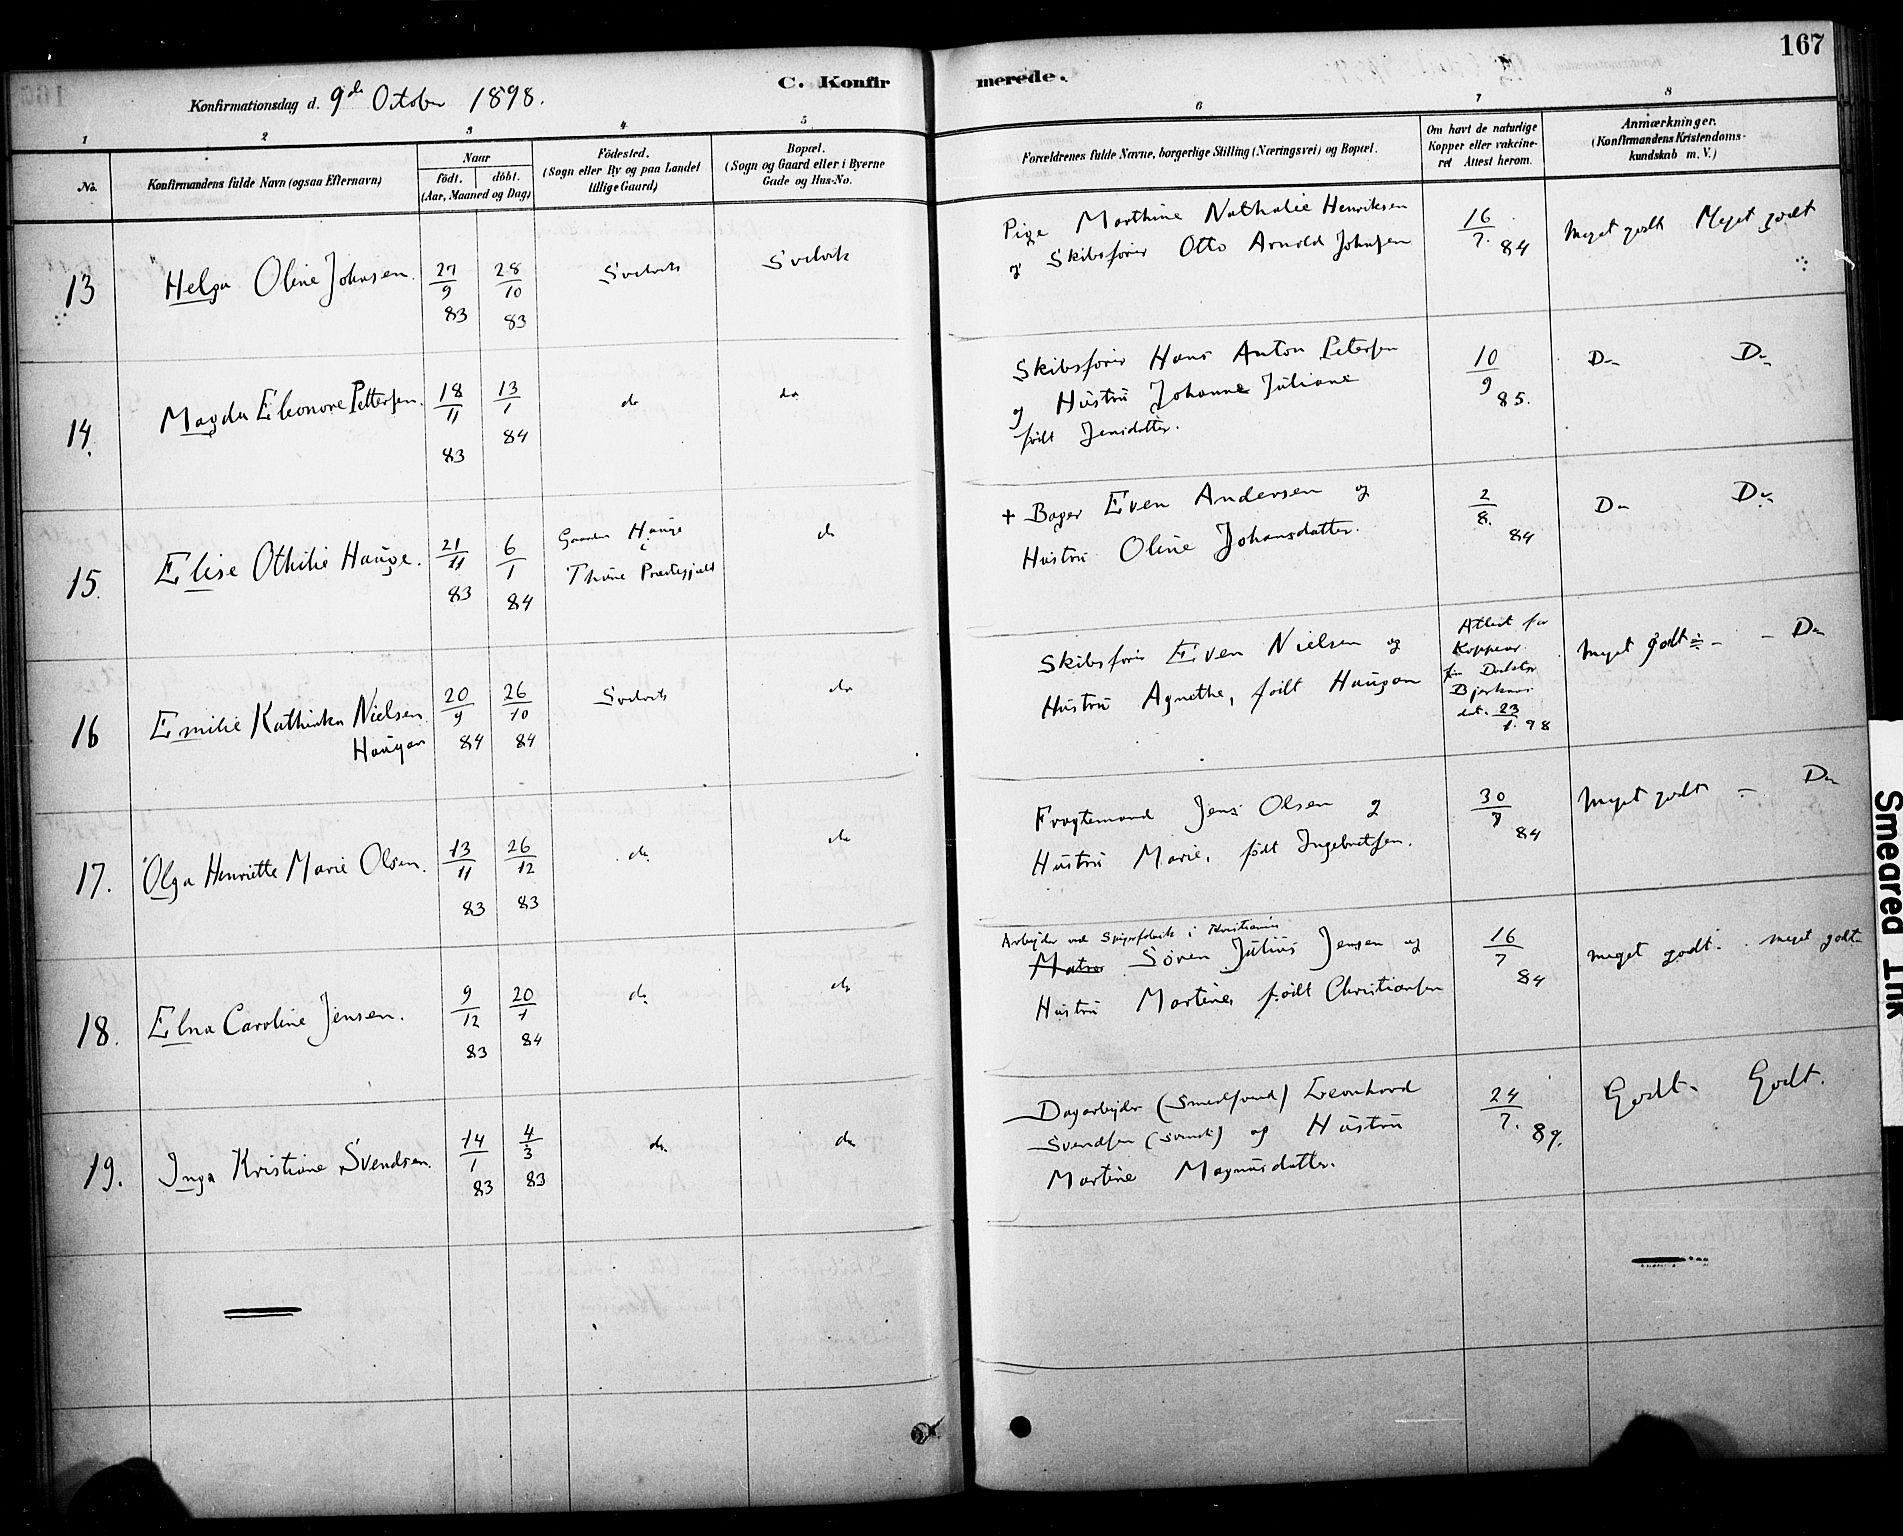 167
Konfirmationsdag d. 9de October 1898.
C. Konfirmerede.
1 2 3 4 5 6 7 8
No.
Konfirmandens fulde Navn (ogsaa Efternavn)
Naar
født. døbt.
(Aar, Maaned og Dag)
Fødested.
(Sogn eller By og paa Landet
tillige Gaard)
Bopæl.
(Sogn og Gaard eller i Byerne
Gade og Hus-No.
Forældrenes fulde Navne, borgerlige Stilling (Næringsvei) og Bopæl.
Om havt de naturlige
Kopper eller vakcine-
ret Attest herom.
Anmærkninger.
(Konfirmandens Kristendoms-
kundskab m. V.)
13 Helga Oline Johnsen. 27/9 83 28/10 83 Svelvik Svelvik
Pige Marthine Nathalie Henriksen
og Skibsfører Otto Arnold Johnsen
16/7. 84 Meget godt Meget godt
14. Magda Eleonore Pettersen. 18/11 83 13/1 84 do do
Skibsfører Hans Anton Petersen
og Hustru Johanne Juliane
født Jensdatter.
10/9 85. Do Do
15. Elise Othilie Hauge. 21/11 83 6/1 84 Gaarden Hauge
i
Thune Præstegjeld do
+ Bager Even Andersen og
Hustru Oline Johansdatter.
2/8. 84 Do Do
16 Emilie Kathinka Nielsen
Haugan 20/9 84 26/10 84 Svelvik do
Skibsfører Even Nielsen og
Hustru Agnethe, født Haugan
Attest for
Kopper
fra Doktor
dat. 23/1. 98
Meget godt - - Do
17. Olga Henriette Marie Olsen. 13/11 83 26/12 83 do. do
Fragtemand Jens Olsen og
Hustru Marie, født Ingebretsen.
30/7 84 Meget godt - Do
18. Elna Caroline Jensen. 9/12 83 20/1 84 do do
Arbejder ved Spigerfabrik i Kristiania
Matros Søren Julius Jensen og
Hustru Martine, født Christiansen
16/7 84 meget godt. meget godt
19. Inga Kristiane Svendsen. 14/1 83 4/3 83 do. do
Dagarbejder (Smedsvend) Leonhard
Svendsen (Svensk) og Hustru
Martine Magnusdatter.
24/7. 89. Godt. Godt.
Smeared Ink